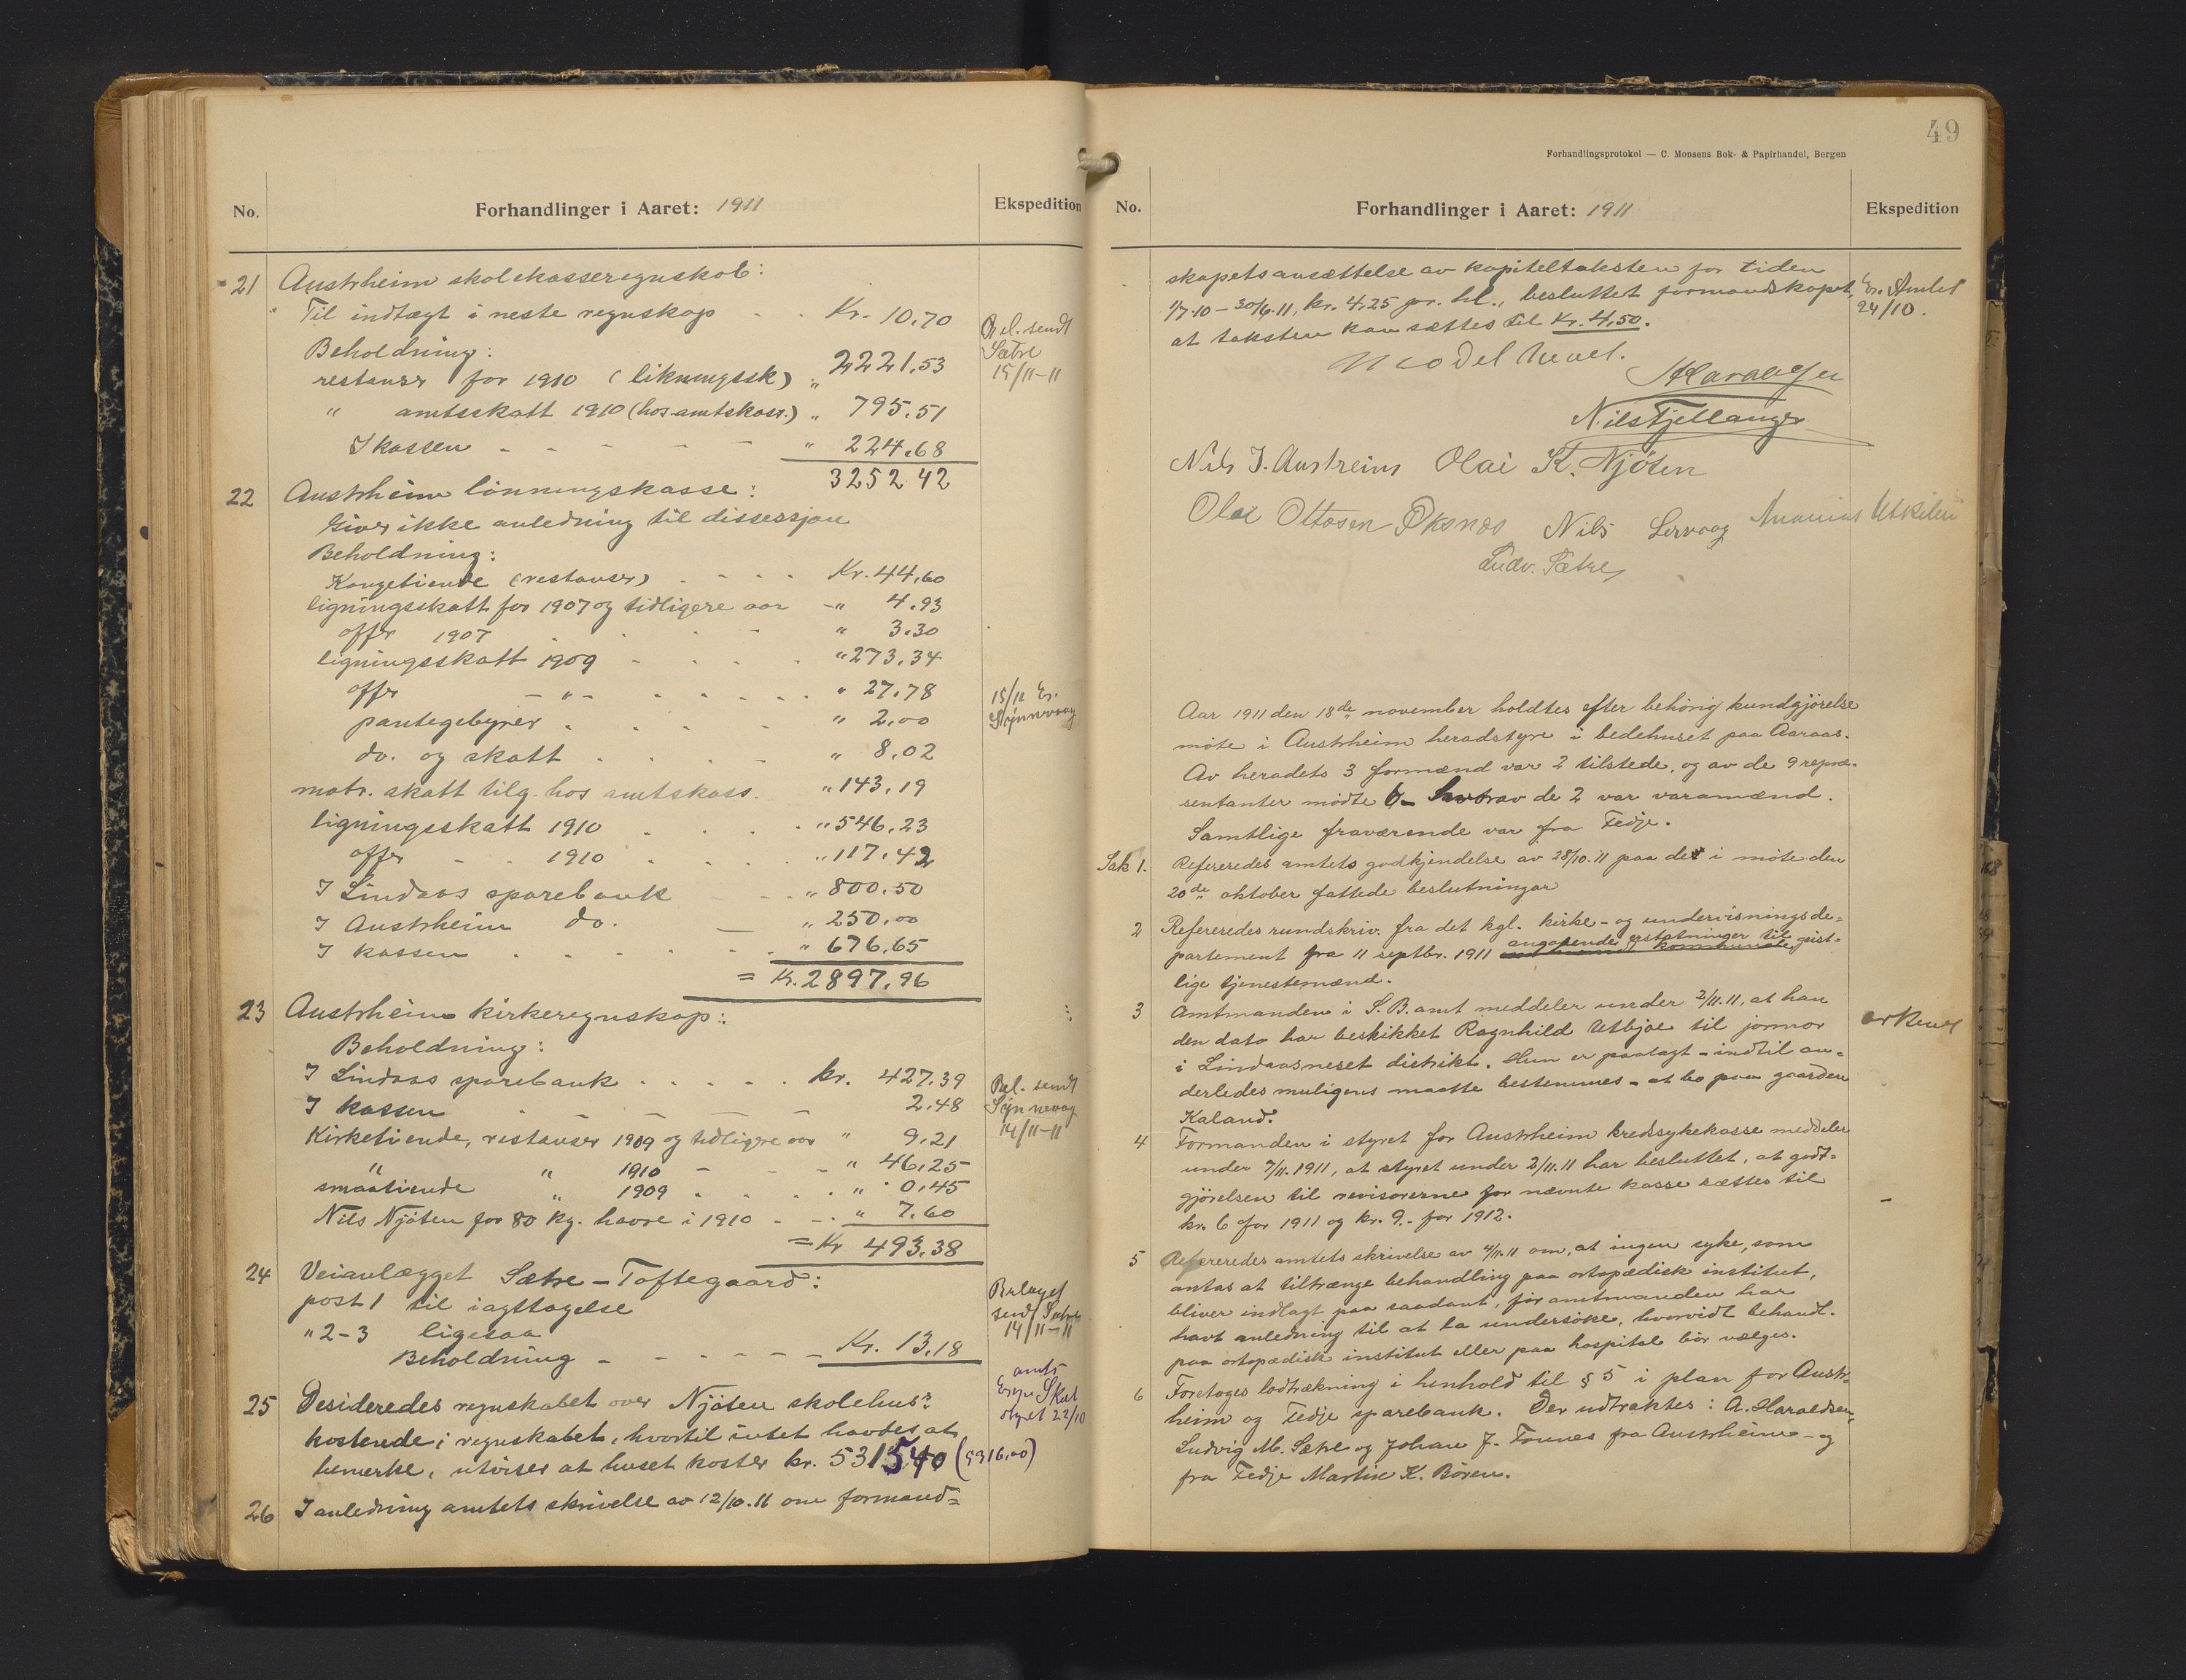 No.
Forhandlinger i Aaret: 1911
Ekspedition
21 Austrheim skolekasseregnskab:
Til indtægt i neste regnskap - - Kr. 10.70
Beholdning:
restanser for 1910 (likningssk) " 2221,53
" amtsskatt 1910 (hos amtskass.) " 795.51
I kassen - - - - - " 224.68
3252 42
Bel. sendt
Sætre
15/11-11
22 Austrheim lönningskasse:
Giver ikke anledning til dissessjon
Beholdning:
Kongetiende (restanser) - - - - Kr. 44,60
ligningsskatt for 1907 og tidligere aar - " 4.93
offer 1907 - - - - " 3.30
ligningsskatt 1909 - - - - " 273,34
offer - " - - - - - - " 27.78
pantegebyrer - - - - " 2,00
do. og skatt - - - - " 8.02
matr. skatt tilg. hos amtskass. " 143.19
ligningsskatt 1910 - - - - " 546.23
offer - - 1910 - - - - " 117.42
I Lindaas sparebank - - - " 800.50
I Austrheim do. - " 250.00
I kassen - - - - - " 676.65
= Kr. 2897,96
15/11 Er.
Synnevaag
23 Austrheim kirkeregnskap:
Beholdning:
I Lindaas sparebank - - - - - kr. 427.39
I kassen - - - - - 2.48
Kirketiende, restanser 1909 og tidligere aar " 9.21
" " 1910 - - - " 46.25
smaatiende " 1909 - - - - " 0.45
Nils Njöten for 80 kg. havre i 1910 - - " 7.60
= Kr 493,38
Bel. sendt
Synnevaag
14/11-11
24 Veianlægget Sætre - Toftegaard:
post 1 til iagttagelse
" 2-3 ligesaa
Beholdning - - - - - - Kr. 13,18
Bilaget
sendt Sætre
14/11-11
25 Desideredes regnskabet over Njöten skolehus's
kostende i regnskabet, hvortil intet havdes at
bemerke, utviser at huset koster kr. 531540 (5316,00)
amts
Skol
styret 22/10
26 I anledning amtets skrivelse av 12/10.11 om formand=
49
Forhandlingsprotokol — C. Monsens Bok- & Papirhandel, Bergen
No.
Forhandlinger i Aaret: 1911
Ekspedition
skapets ansættelse av kapiteltaksten for tiden
1/7.10 - 30/6.11, kr. 4,25 pr. hl., besluttet formandskapet,
at taksten kan sættes til Kr. 4,50.
Er. Amtet
24/10.
Mødet hevet.
A Haraldsen
Nils Fjellanger
Nils J. Austreim Olai K. Njöten
Olai Ottosen Öksnes Nils Lervaag Ananias Utkilen
Ludv. Sætre
Aar 1911 den 18de november holdtes efter behörig kundgjörelse
möte i Austrheim heradstyre i bedehuset paa Aaraas.
Av heradets 3 formænd var 2 tilstede, og av de 9 repræ-
sentanter mödte 6 - hvorav de 2 var varamænd.
Samtlige fraværende var fra Fedje.
Sak 1. Refereredes amtets godkjendelse av 28/10.11 paa de i möte den
20de oktober fattede beslutninger
2 Refereredes rundskriv. fra det kgl. kirke- og undervisningsde=
partement fra 11 septbr. 1911 angaaende erstatninger til geist=
lige tjenestemænd.
3 Amtmanden i S. B. amt meddeler under 2/11.11, at han
den dato har beskikket Ragnhild Utbjoe til jormor
i Lindaasneset distrikt. Hun er paalagt - indtil an=
derledes muligens maatte bestemmes - at bo paa gaarden
Kaland.
4 Formanden i styret for Austrheim kredssykekasse meddeler
under 7/11.1911, at styret under 2/11.11 har besluttet, at godt=
gjörelsen til revisorerne for nævnte kasse sættes til
kr. 6 for 1911 og kr. 9.- for 1912.
5 Refereredes amtets skrivelse av 4/11.11 om, at ingen syke, som
antas at tiltrænge behandling paa ortopædisk institut,
bliver indlagt paa saadant, för amtmanden har
havt anledning til at la undersöke, hvorvidt behandl.
paa ortopædisk institut eller paa hospital bör vælges.
6 Foretoges lodtrækning i henhold til § 5 i plan for Austr-
heim og Fedje sparebank. Der udtraktes: A. Haraldsen,
Ludvig M. Sætre og Johan J. Tonnes fra Austrheim - og
fra Fedje Martin K. Bören.